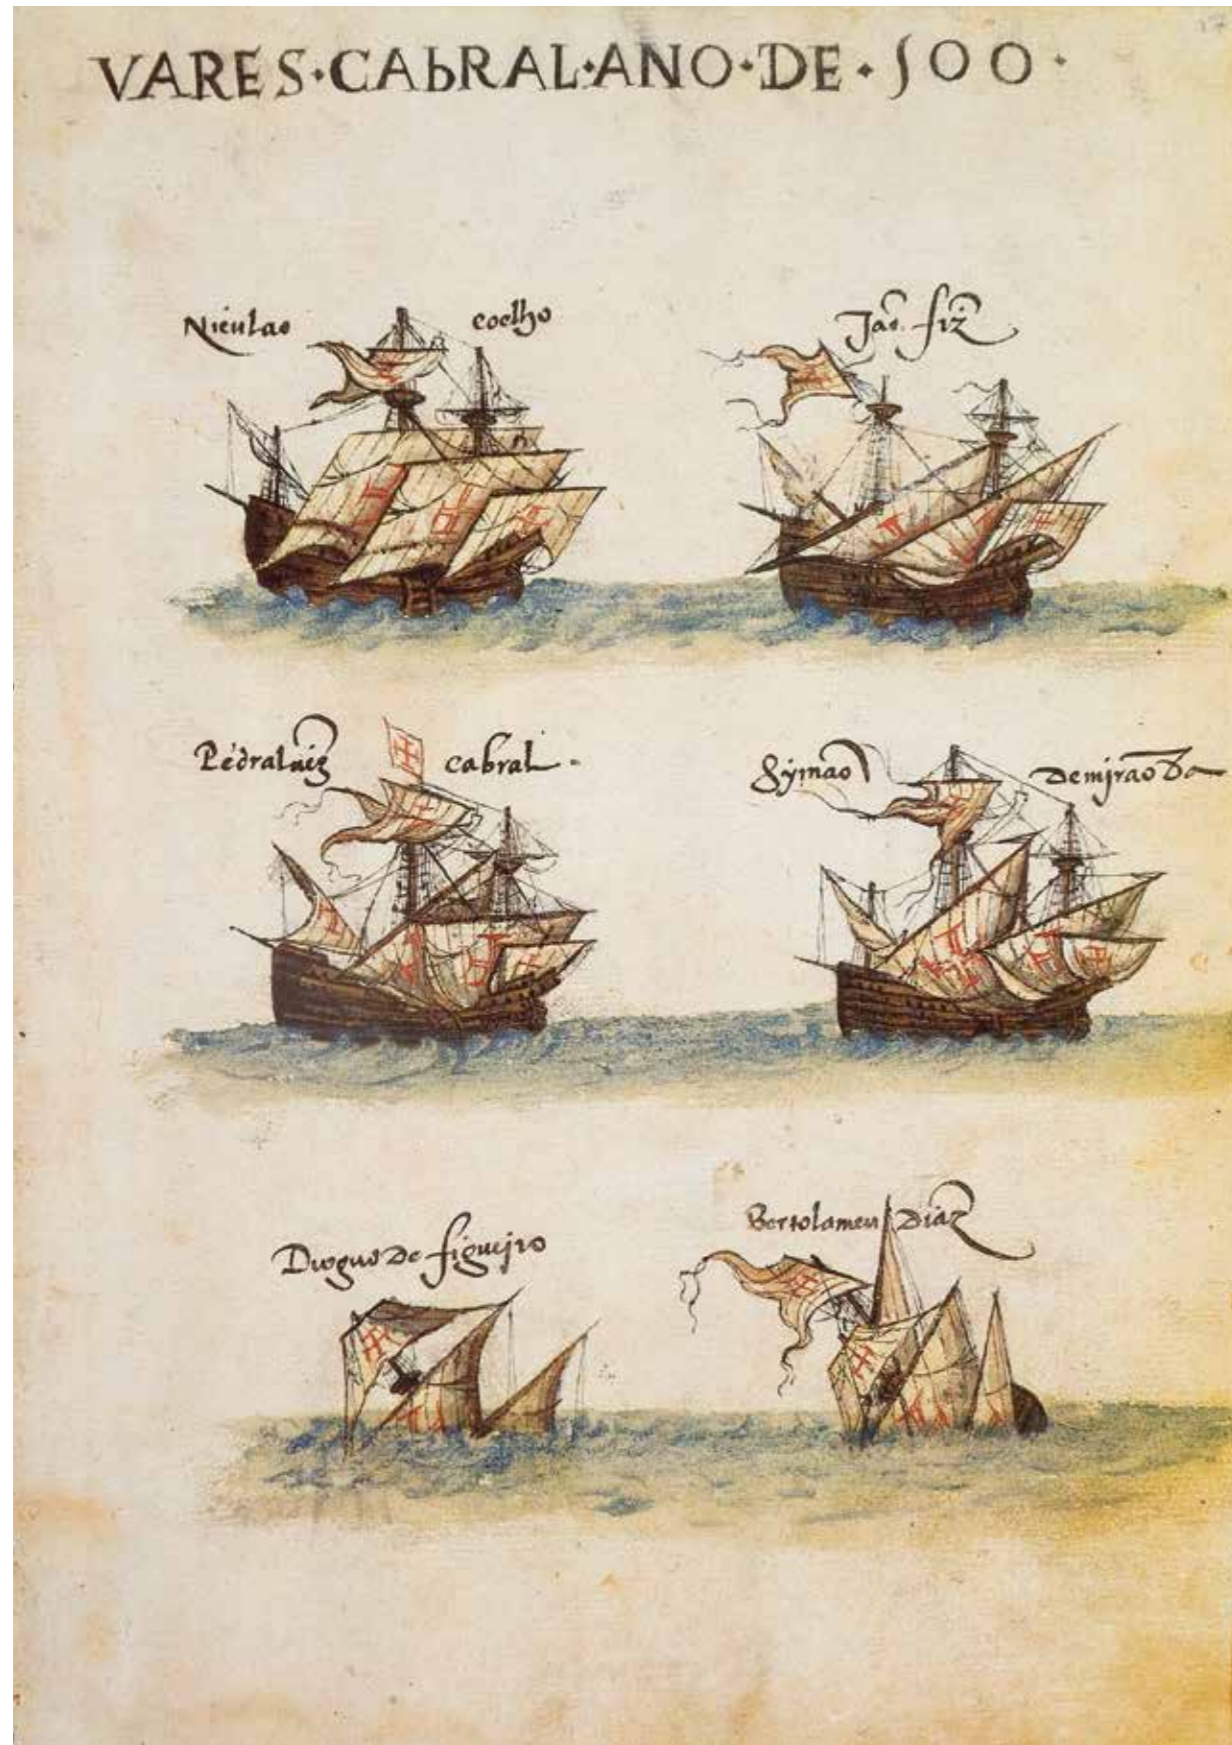 VARES·CABRAL·ANO·DE·500·
Niculao coelho
Jaõ fiz
Pedraluiz cabral
Symaõ demjraõda
Dioguo de figueiro
Bertolameu diaz